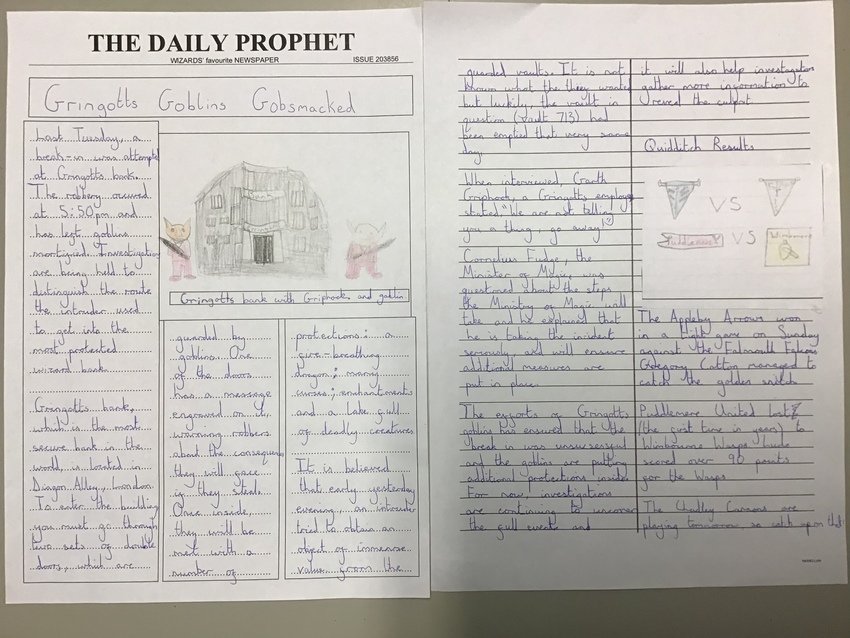 THE DAILY PROPHET
WIZARDS' favourite NEWSPAPER
ISSUE 203856
Gringotts Goblins Gobsmacked
Last Tuesday, a
break-in was attempted
at Gringotts bank.
The robbery occured
at 5:50pm and
has left goblins
mortified. Investigations
are being held to
distinguish the route
the intruder used
to get into the
most protected
wizard bank.
Gringotts bank,
which is the most
secure bank in the
world, is located in
Diagon Alley, London.
To enter the building
you must go through
two sets of double
doors, which are
Gringotts bank with Griphook, and goblin
guarded by
goblins. One
of the doors
has a message
engraved on it,
warning robbers
about the consequences
they will face
if they steal.
Once inside,
they will be
met with a
number of
protections: a
fire-breathing
dragon; many
curses; enchantments
and a lake full
of deadly creatures
It is believed
that early yesterday
evening, an intruder
tried to obtain an
object of immense
value from the
guarded vaults. It is not
known what the they wanted
but luckily, the vault in
question (vault 713) had
been emptied that very same
day.
When interviewed, Garth
Griphook, a Gringotts employee
stated, "We are not telling
you a thing, go away!"
Cornelius Fudge, the
Minister of Magic, was
questioned about the steps
the Ministry of Magic will
take and he explained that
he is taking the incident
seriously and will ensure
additional measures are
put in place.
The efforts of Gringotts
goblins has ensured that the
break in was unsuccessful
and the goblins are putting
additional protections inside
For now, investigations
are continuing to uncover
the full event and
it will also help investigators
gather more information to
reveal the culprit.
Quidditch Results
VS
Puddlemere VS Wimbourne
The Appleby Arrows won
in a tight game on Sunday
against the Falmouth Falcons
Gregory Catton managed to
catch the golden snitch
Puddlemere United Lost
(the first time in years) to
Wimbourne Wasps
scored over 90 points
for the Wasps
The Chudley Cannons are
playing tomorrow so catch up on that